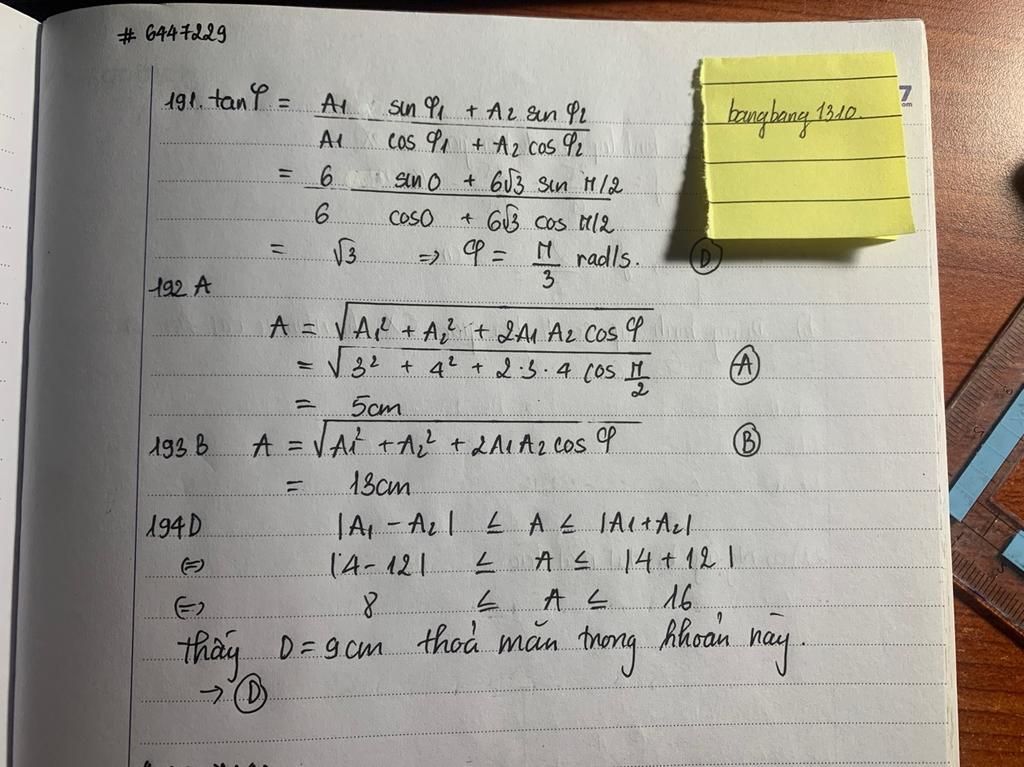 # 6447229
bangbang 1310.
7
om
191. tanφ = A1 sin φ1 + A2 sin φ2
A1 cos φ1 + A2 cos φ2
= 6 sin0 + 6√3 sin π/2
6 cos0 + 6√3 cos π/2
= √3 => φ = π/3 rad/s. D
192 A
A = √A1² + A2² + 2A1 A2 cos φ
= √3² + 4² + 2·3·4 cos π/2 A
= 5cm
193 B A = √A1² + A2² + 2A1A2 cos φ B
= 13cm
194D |A1 - A2| ≤ A ≤ |A1+A2|
(=) |4-12| ≤ A ≤ |4+12|
(=) 8 ≤ A ≤ 16
thấy D = 9cm thoả mãn trong khoản này.
→ D